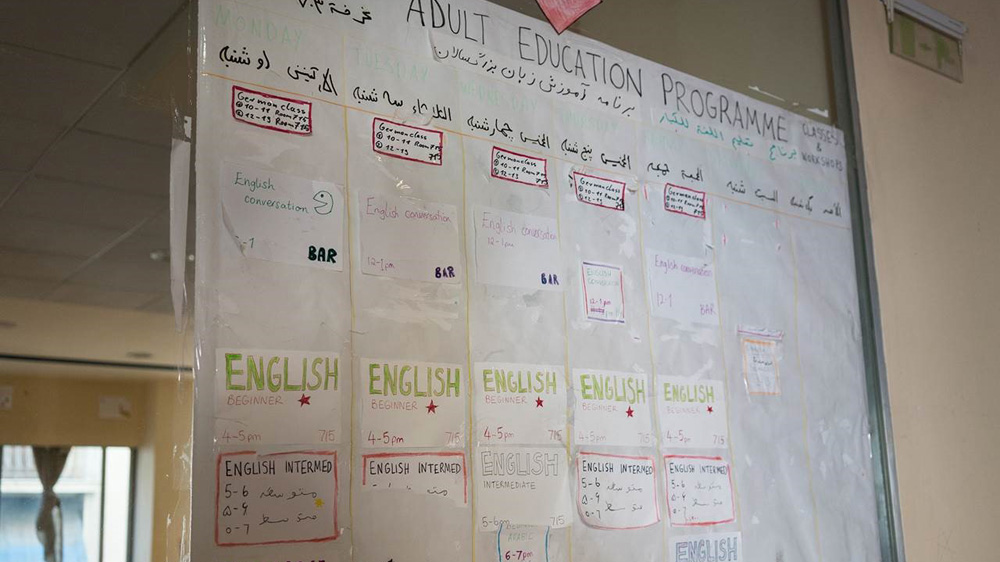 غرفة ٧.٣
ADULT EDUCATION PROGRAMME
CLASSES
&
WORKSHOPS
برنامه آموزش زبان بزرگسالان
برنامج تعليم اللغة للكبار
MONDAY
TUESDAY
الاثنين دو شنبه
الثلاثاء سه شنبه
چهارشنبه
الخميس پنج شنبه
الجمعة جمعه
السبت شنبه
الأحد
German class
10-11 Room 715
12-13
German class
10-11 Room 715
12-13 715
German class
10-11 Room 715
12-13
German class
10-11 Room
12-13
German class
10-11 Room
12-13
English
conversation
-1
BAR
English conversation
12-1pm
BAR
English conversation
12-1pm
BAR
ENGLISH
CONVERSATION
12-1pm
English conversation
12-1
BAR
ENGLISH
BEGINNER
4-5pm 715
ENGLISH
BEGINNER
4-5pm 715
ENGLISH
BEGINNER
4-5pm 715
ENGLISH
BEGINNER
4-5pm 715
ENGLISH
BEGINNER
4-5pm 715
ENGLISH INTERMED
5-6 متوسطه
۵-۶
متوسط
ENGLISH INTERMED
ENGLISH
INTERMEDIATE
5-6pm 715
ARABIC
6-7pm
ENGLISH INTERMED
5-6 متوسطه
۵-۶
متوسط
ENGLISH INTERMED
5-6 متوسطه
۵-۶
متوسط
ENGLISH